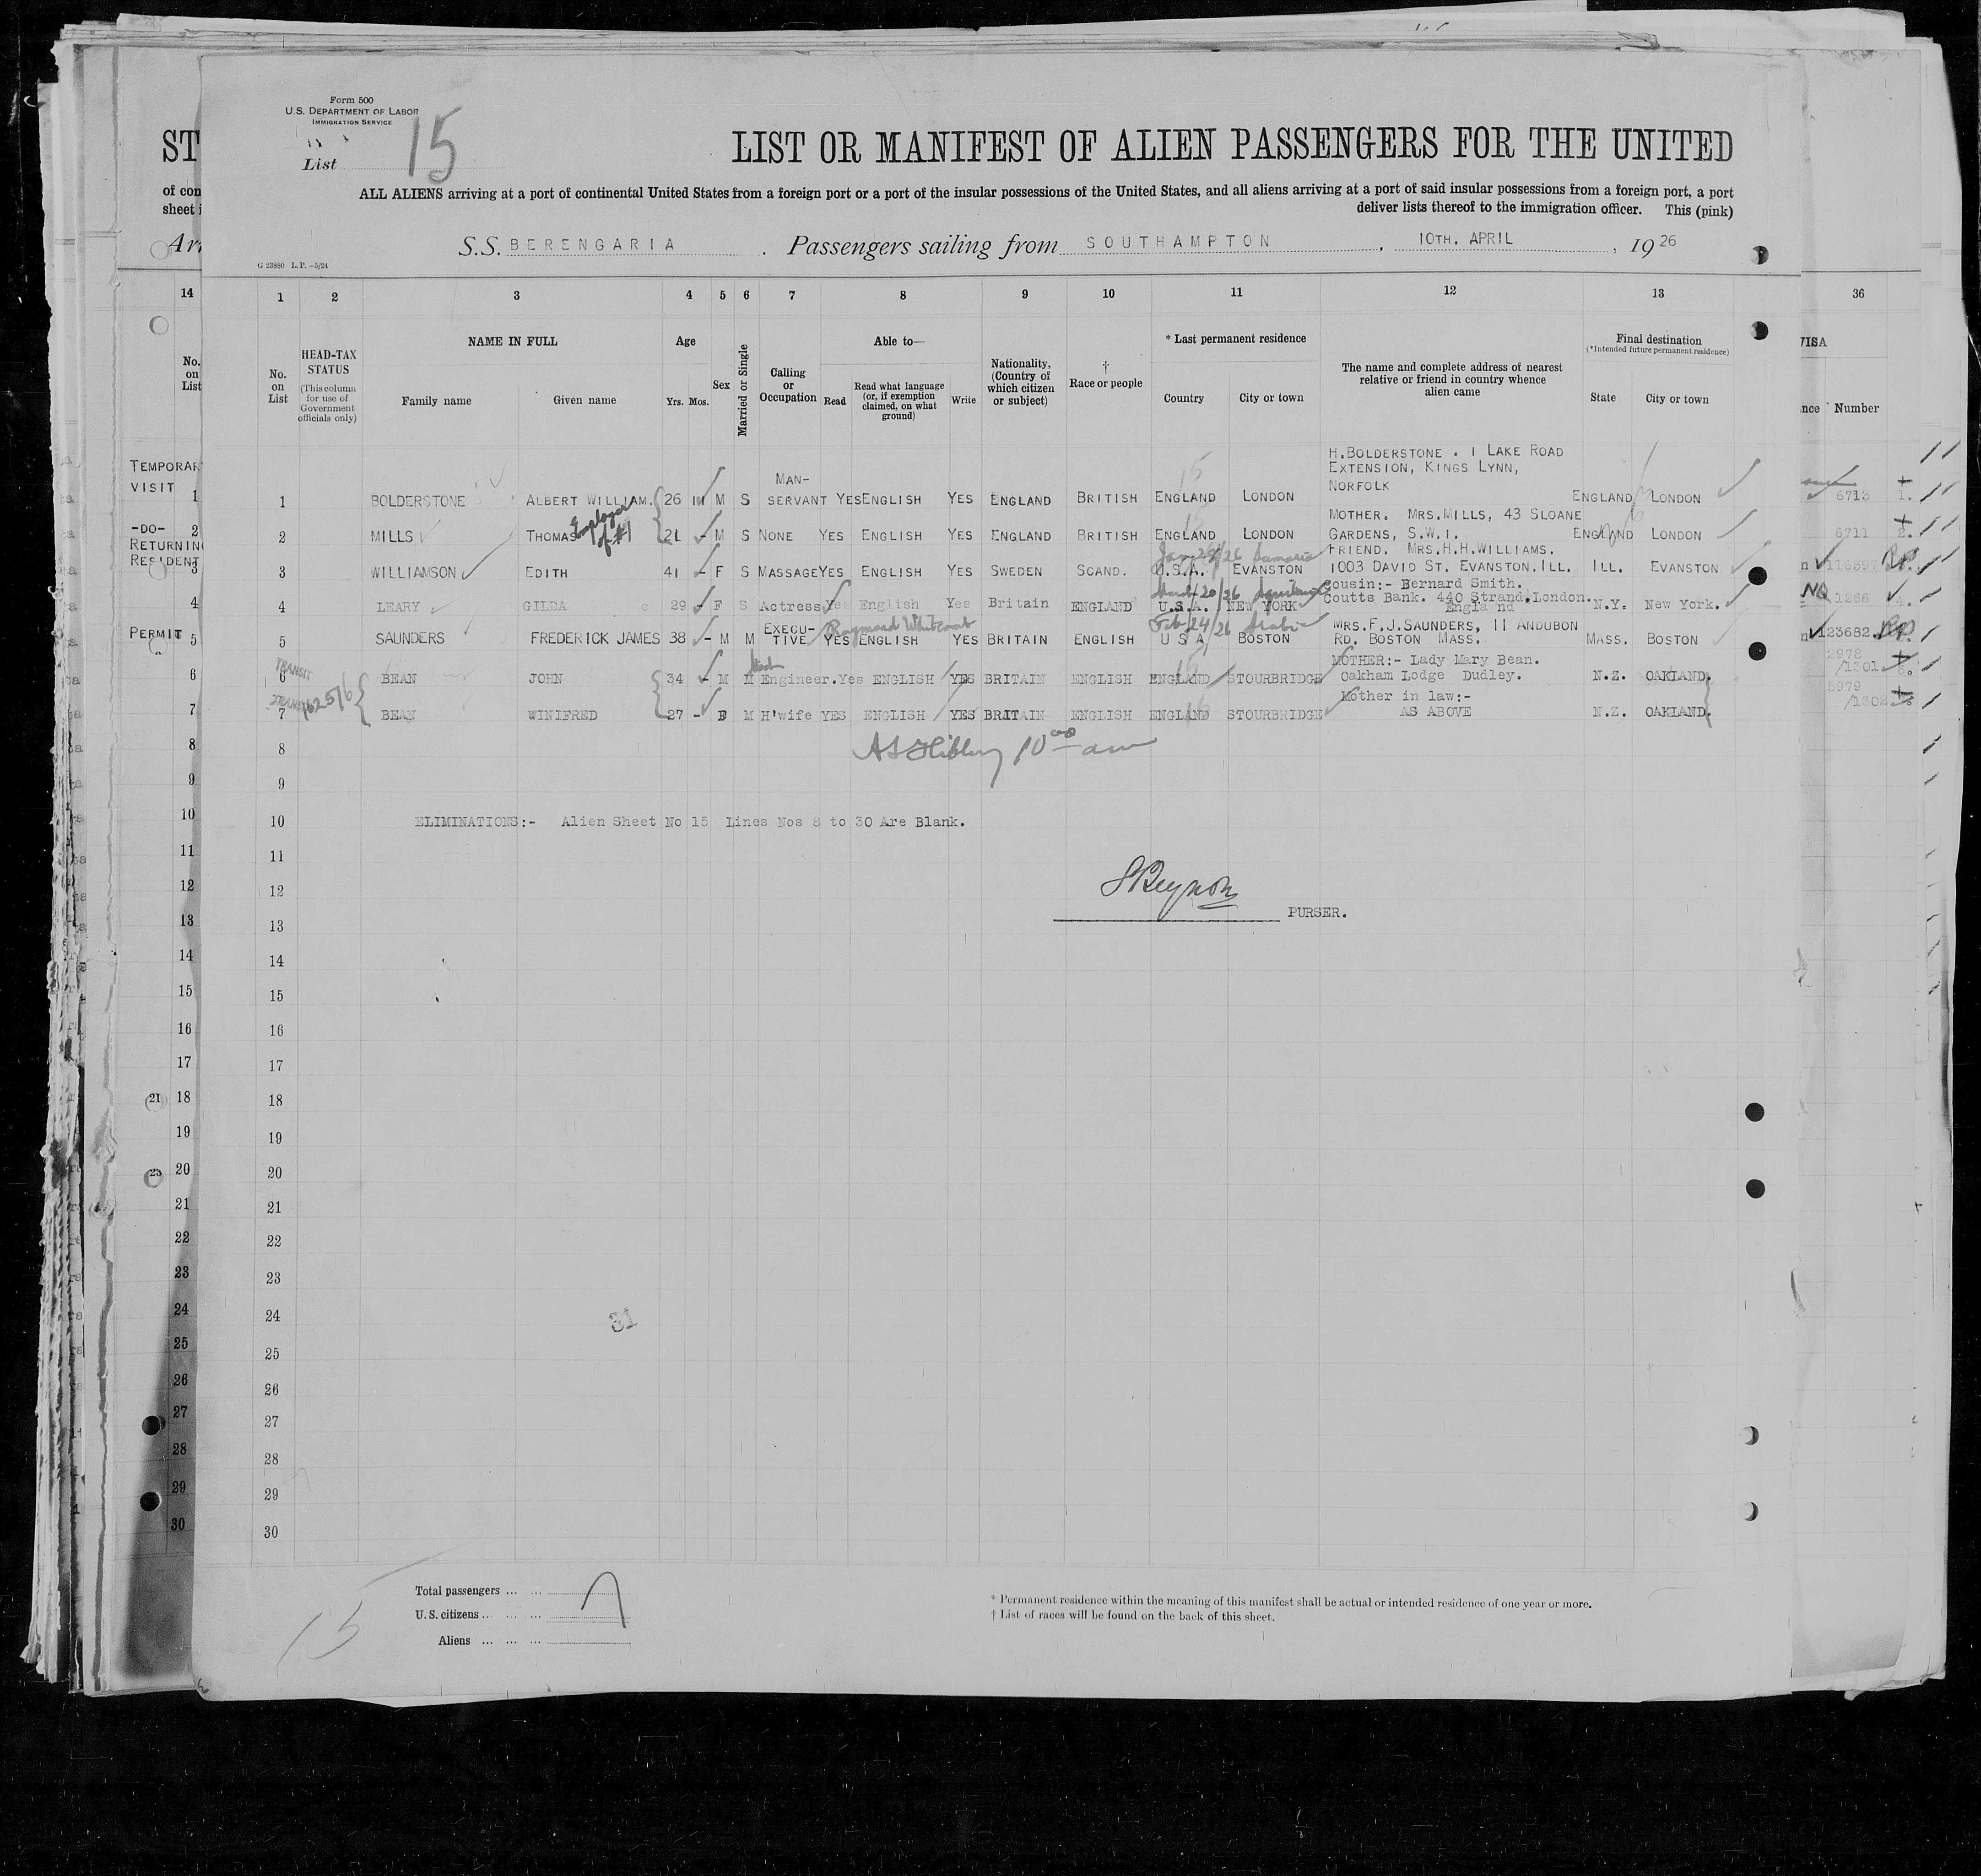 Form 500
U.S. DEPARTMENT OF LABOR
IMMIGRATION SERVICE
List 15
LIST OR MANIFEST OF ALIEN PASSENGERS FOR THE UNITED
ALL ALIENS arriving at a port of continental United States from a foreign port or a port of the insular possessions of the United States, and all aliens arriving at a port of said insular possessions from a foreign port, a port
deliver lists thereof to the immigration officer. This (pink)
S.S. BERENGARIA . Passengers sailing from SOUTHAMPTON , 10TH. APRIL , 1926
G 23880 L.P.—5/24
ST
of con
sheet i
Arr
14 1 2 3 4 5 6 7 8 9 10 11 12 13 36
No. on List
No. on List
HEAD-TAX STATUS
(This column for use of Government officials only)
NAME IN FULL
Family name Given name
Age
Yrs. Mos.
Sex
Married or Single
Calling or Occupation
Able to—
Read
Read what language (or, if exemption claimed, on what ground)
Write
Nationality. (Country of which citizen or subject)
† Race or people
* Last permanent residence
Country City or town
The name and complete address of nearest relative or friend in country whence alien came
Final destination
(*Intended future permanent residence)
State City or town
VISA
nce Number
TEMPORAR
VISIT
-DO-
RETURNING
RESIDENT
PERMIT
H.BOLDERSTONE . 1 LAKE ROAD
EXTENSION, KINGS LYNN,
NORFOLK
1 BOLDERSTONE ALBERT WILLIAM. 26 M S MAN-SERVANT YES ENGLISH YES ENGLAND BRITISH ENGLAND LONDON ENGLAND LONDON 6713 1.
Employer of #1
MOTHER. MRS.MILLS, 43 SLOANE
2 MILLS THOMAS 21 - M S NONE YES ENGLISH YES ENGLAND BRITISH ENGLAND LONDON GARDENS, S.W.1. ENGLAND LONDON 6711 2.
FRIEND. MRS.H.H.WILLIAMS.
3 WILLIAMSON EDITH 41 - F S MASSAGE YES ENGLISH YES SWEDEN SCAND. U.S.A. EVANSTON 1003 DAVID ST. EVANSTON.ILL. ILL. EVANSTON
March 20/26
Cousin:- Bernard Smith.
4 LEARY GILDA 29 F S Actress Yes English Yes Britain ENGLAND U.S.A. NEW YORK Coutts Bank. 440 Strand.London. N.Y. New York. NQ 1266 4.
England
Feb 24/26 Arabic
MRS.F.J.SAUNDERS, 11 ANDUBON
5 SAUNDERS FREDERICK JAMES 38 - M M EXECU-TIVE YES ENGLISH YES BRITAIN ENGLISH U S A BOSTON RD. BOSTON MASS. MASS. BOSTON 123682
MOTHER:- Lady Mary Bean. 2978
TRANSIT
6 BEAN JOHN 34 - M M Engineer. Yes ENGLISH YES BRITAIN ENGLISH ENGLAND STOURBRIDGE Oakham Lodge Dudley. N.Z. OAKLAND. /1301
Mother in law:- 5979
TRANSIT
7 BEAN WINIFRED 27 - F M H'wife YES ENGLISH YES BRITAIN ENGLISH ENGLAND STOURBRIDGE AS ABOVE N.Z. OAKLAND. /1302
8 10 00 am
9
10 ELIMINATIONS:- Alien Sheet No 15 Lines Nos 8 to 30 Are Blank.
11
12
13 PURSER.
14
15
16
17
18
19
20
21
22
23
24
31
25
26
27
28
29
30
Total passengers ... ... 7
U.S. citizens ... ... ...
Aliens ... ... ...
15
* Permanent residence within the meaning of this manifest shall be actual or intended residence of one year or more.
† List of races will be found on the back of this sheet.